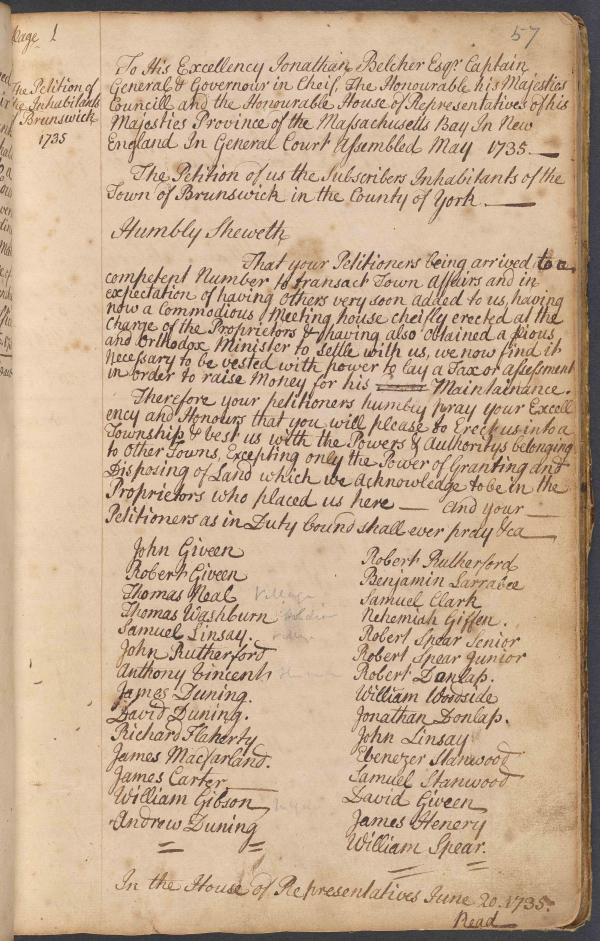 Page 1
57
The Petition of
the Inhabitants
of Brunswick
1735
To His Excellency Jonathan Belcher Esqr Captain
General & Governour in Cheif, The Honourable his Majesties
Councill and the Honourable House of Representatives of his
Majesties Province of the Massachusetts Bay In New
England In General Court Assembled May 1735.
The Petition of us the Subscribers Inhabitants of the
Town of Brunswick in the County of York.
Humbly Sheweth
That your Petitioners being arrived to a
competent Number to transact Town Affairs and in
expectation of having Others very soon added to us, having
now a Commodious Meeting house cheifly erected at the
Charge of the Proprietors & having also obtained a pious
and Orthodox Minister to settle with us, we now find it
Necessary to be vested with power to lay a Tax or assessment
in order to raise Money for his Maintainance.
Therefore your petitioners humbly pray your Excell
ency and Honours that you will please to Erect us into a
Township & vest us with the Powers & Authoritys belonging
to Other Towns, Excepting only the Power of Granting and
Disposing of Land which we Acknowledge to be in the
Proprietors who placed us here — And your —
Petitioners as in Duty bound shall ever pray &ca
John Giveen
Robert Giveen
Thomas Neal
Village
Thomas Washburn
Samuel Linsay.
John Rutherford
Anthony Vincent
James Duning.
David Duning.
Richard Flaherty
James Macfarland.
James Carter
William Gibson
Andrew Duning
Robert Rutherford
Benjamin Larrabee
Samuel Clark
Nehemiah Giffen.
Robert Spear Senior
Robert Spear Junior
Robert Dunlap.
William Woodside
Jonathan Donlap.
John Linsay
Ebenezer Stanwood
Samuel Stanwood
David Giveen
James Henery
William Spear.
In the House of Representatives June 20. 1735.
Read